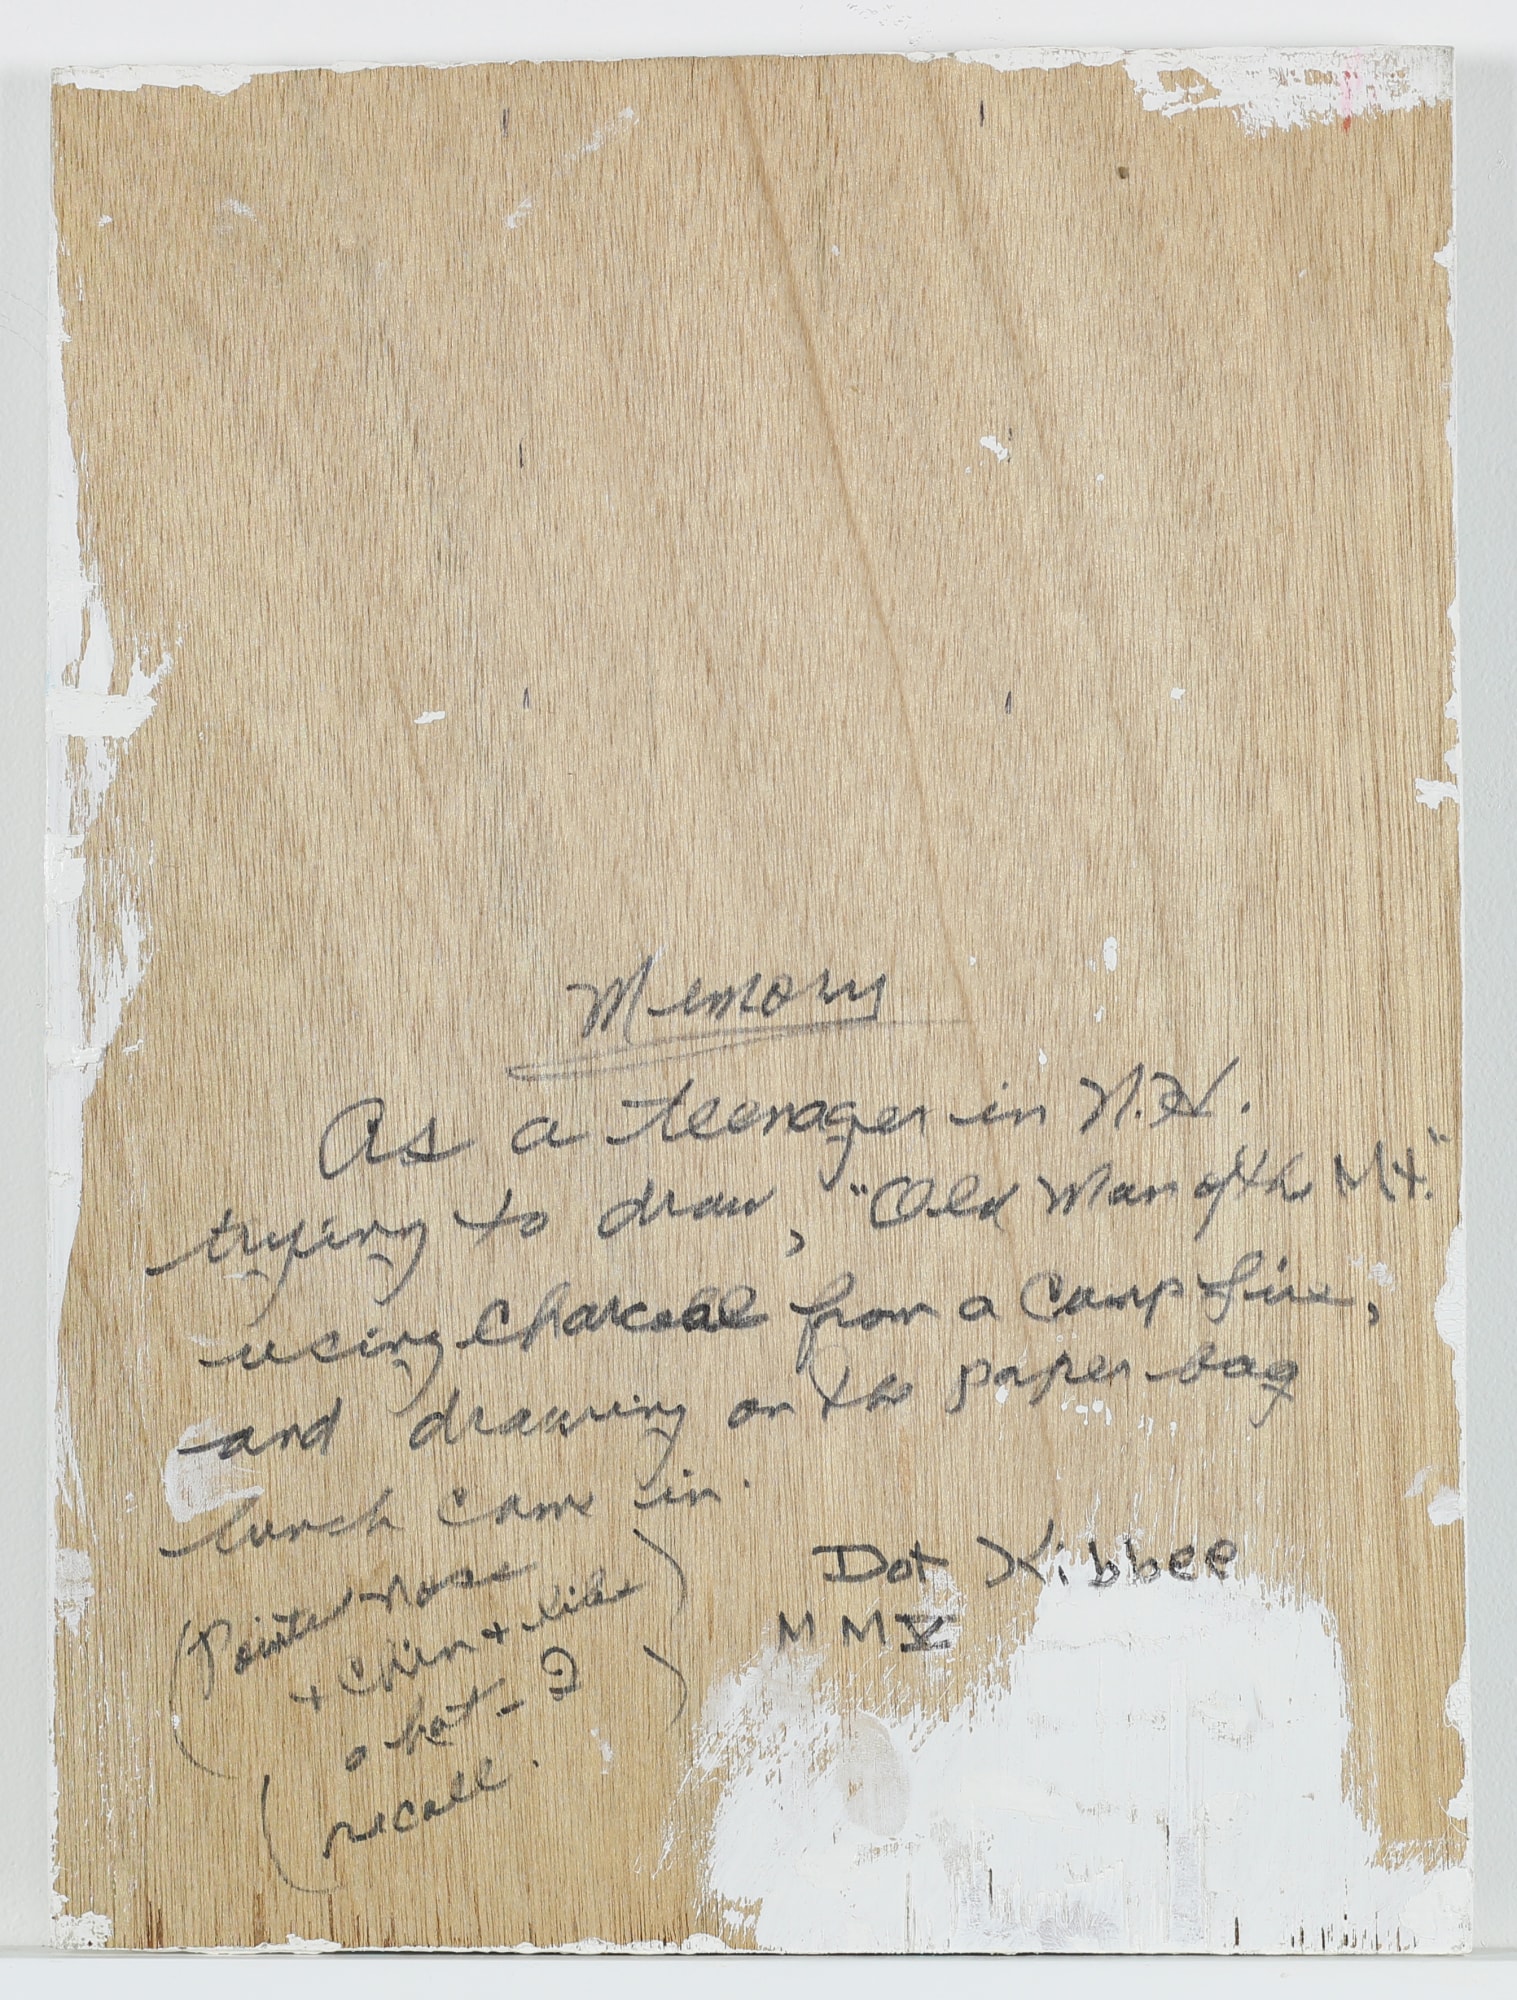 Memory
As a teenager in N.H.
trying to draw, "Old Man of th Mt."
using Charcoal from a Camp fire,
and drawing on the paper bag
lunch came in.
Dot Kibbee
MMV
(Pointed nose)
+ chin + like
a hat - I)
(recall.